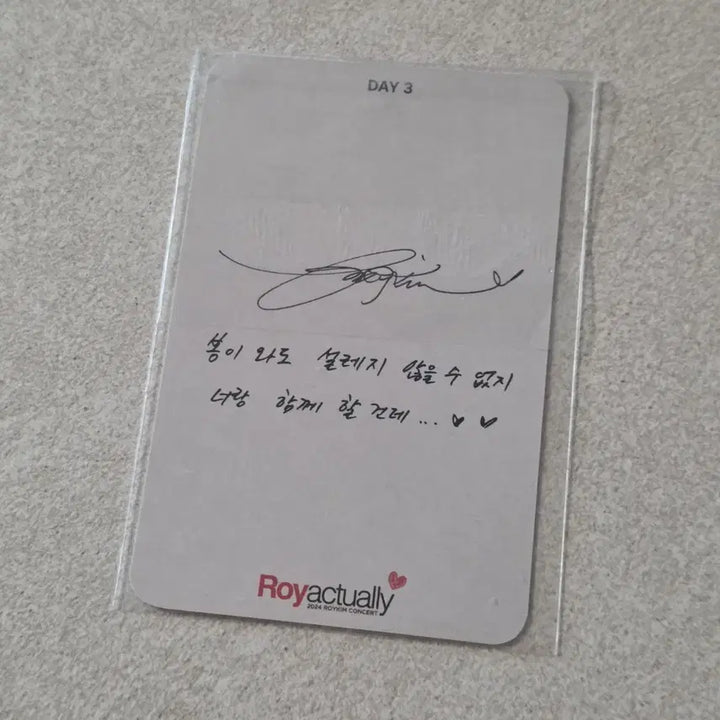 DAY 3
RoyKim
봄이 와도 설레지 않을 수 없지
너랑 함께 할 건데... ♥ ♥
Royactually
2024 ROYKIM CONCERT